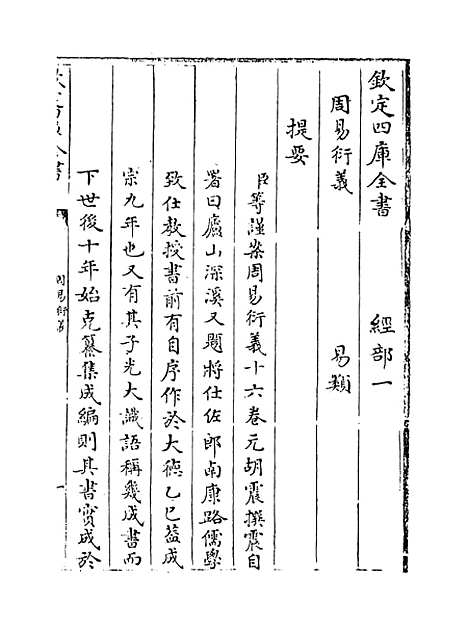 欽定四庫全書　　經部一
周易衍義　　　　易類
提要
臣等謹案周易衍義十六卷元胡震撰震自
署曰廬山深溪又題將仕佐郎南康路儒學
致仕教授書前有自序作於大德乙巳葢成
宗九年也又有其子光大識語稱幾成書而
下世後十年始克纂集成編則其書實成於
周易衍義
一